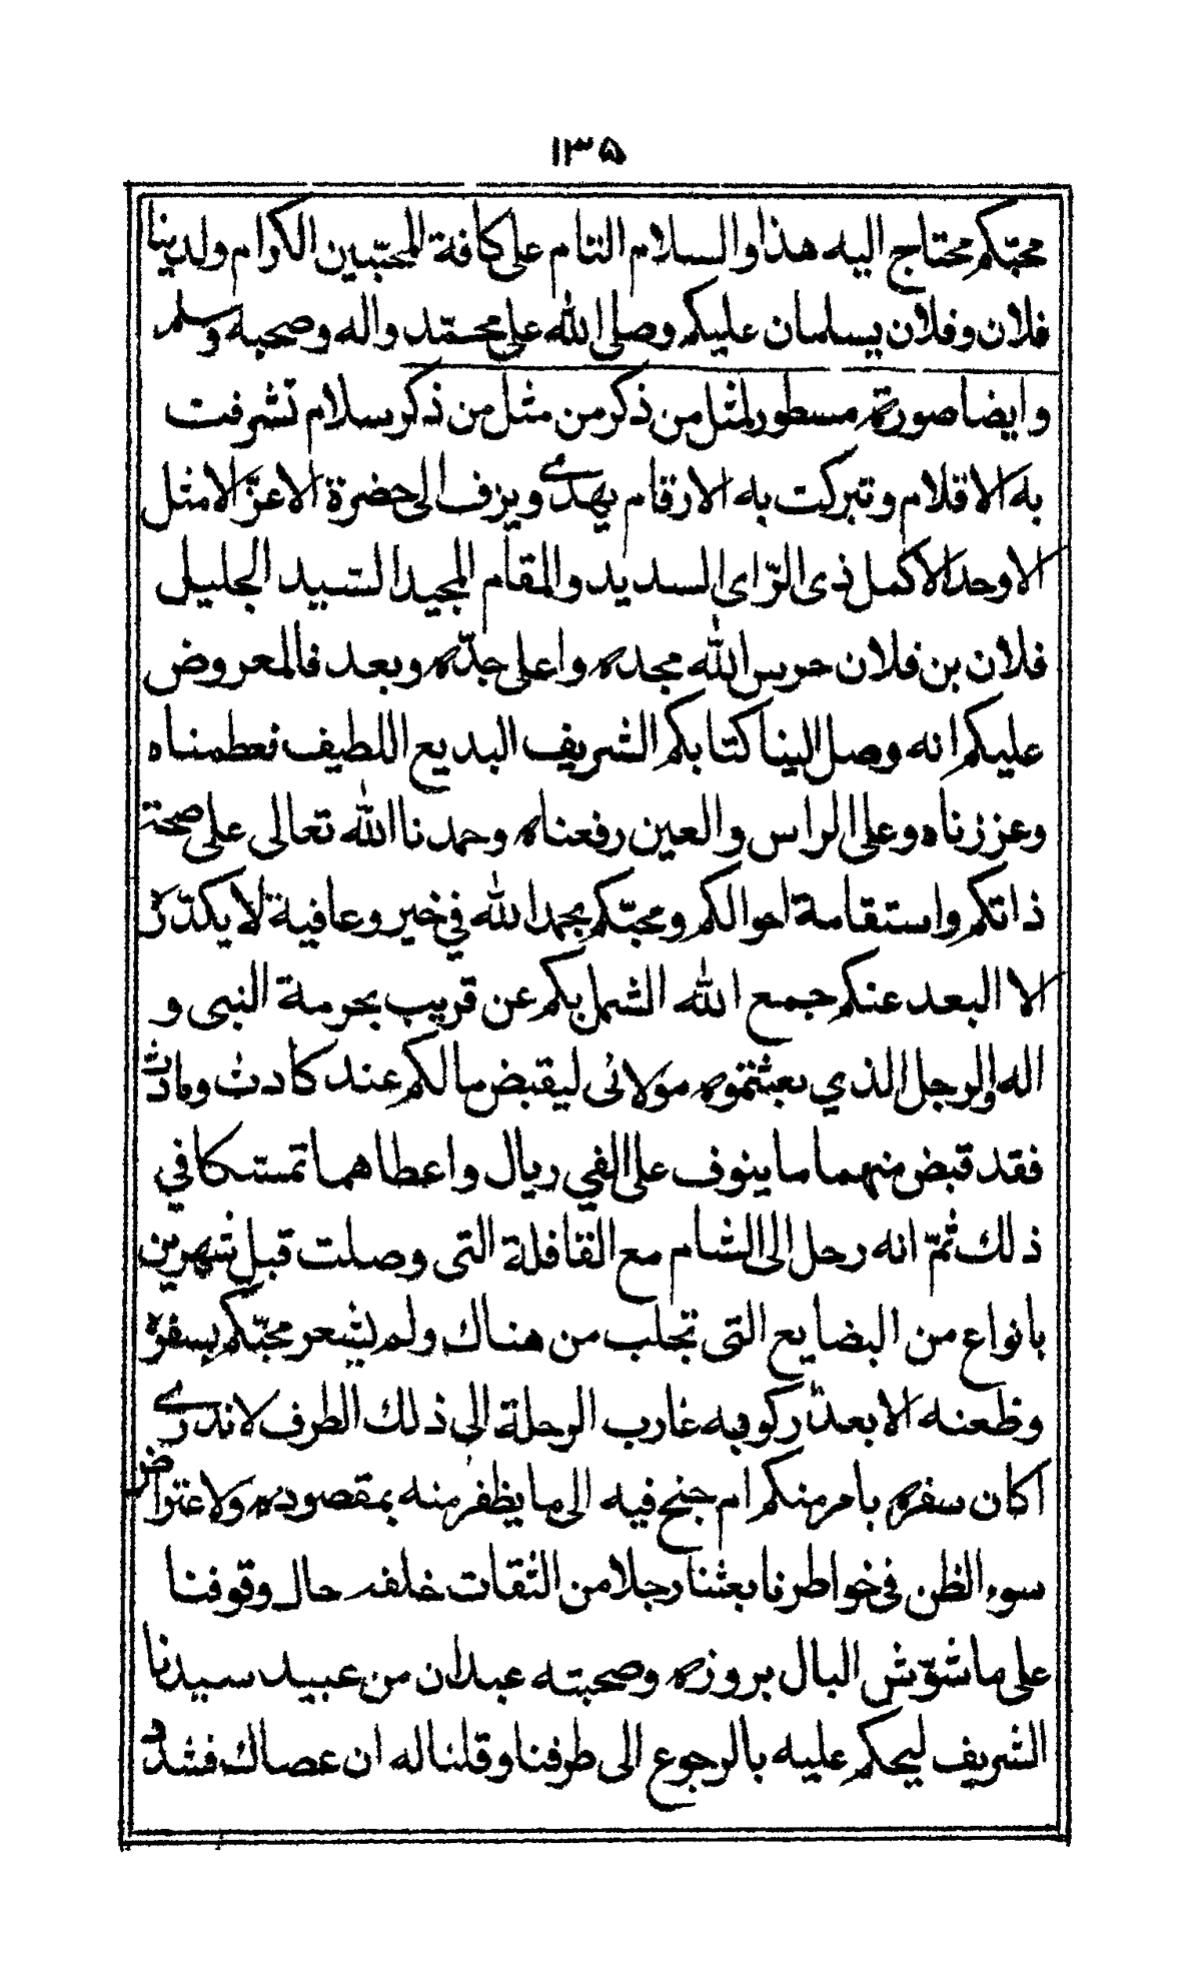 ١٣٥
محبّكم محتاج اليه هذا والسلام التام على كافة المحبّبين الكرام ولدينا
فلان وفلان يسلمان عليكم وصلى الله على محمّد واله وصحبه وسلم
وايضا صورته مسطور لمثل من ذكر من مثل من ذكر سلام تشرفت
به الاقلام وتبركت به الارقام يهدى ويزف الى حضرة الاعزّ الامثل
الاوحد الاكمل ذى الرّاى السديد والمقام المجيد السّيد الجليل
فلان بن فلان حرس الله مجده واعلى جدّه وبعد فالمعروض
عليكم انه وصل الينا كتابكم الشريف البديع اللطيف فعظمناه
وعززناه وعلى الراس والعين رفعناه وحمدنا الله تعالى على صحة
ذاتكم واستقامة احوالكم ومحبّكم بحمد الله في خير وعافية لا يكدّره
الا البعد عنكم جمع الله الشمل بكم عن قريب بحرمة النبى و
اله والرجل الذي بعثتموه مولائى ليقبض مالكم عند كادث ومادث
فقد قبض منهما ما ينوف على الفي ريال واعطاهما تمسّكا في
ذلك ثمّ انه رحل الى الشام مع القافلة التى وصلت قبل شهرين
بانواع من البضايع التى تجلب من هناك ولم يشعر محبّكم بسفره
وظعنه الا بعد ركوبه غارب الرحلة الى ذلك الطرف لا ندرى
اكان سفره بامر منكم ام جنح فيه الى ما يظفر منه بمقصوده ولاعتراض
سوء الظن فى خواطرنا بعثنا رجلا من الثقات خلفه حال وقوفنا
على ما شوّش البال بروزه وصحبته عبدان من عبيد سيدنا
الشريف ليحكم عليه بالرجوع الى طرفنا وقلنا له ان عصاك فشد